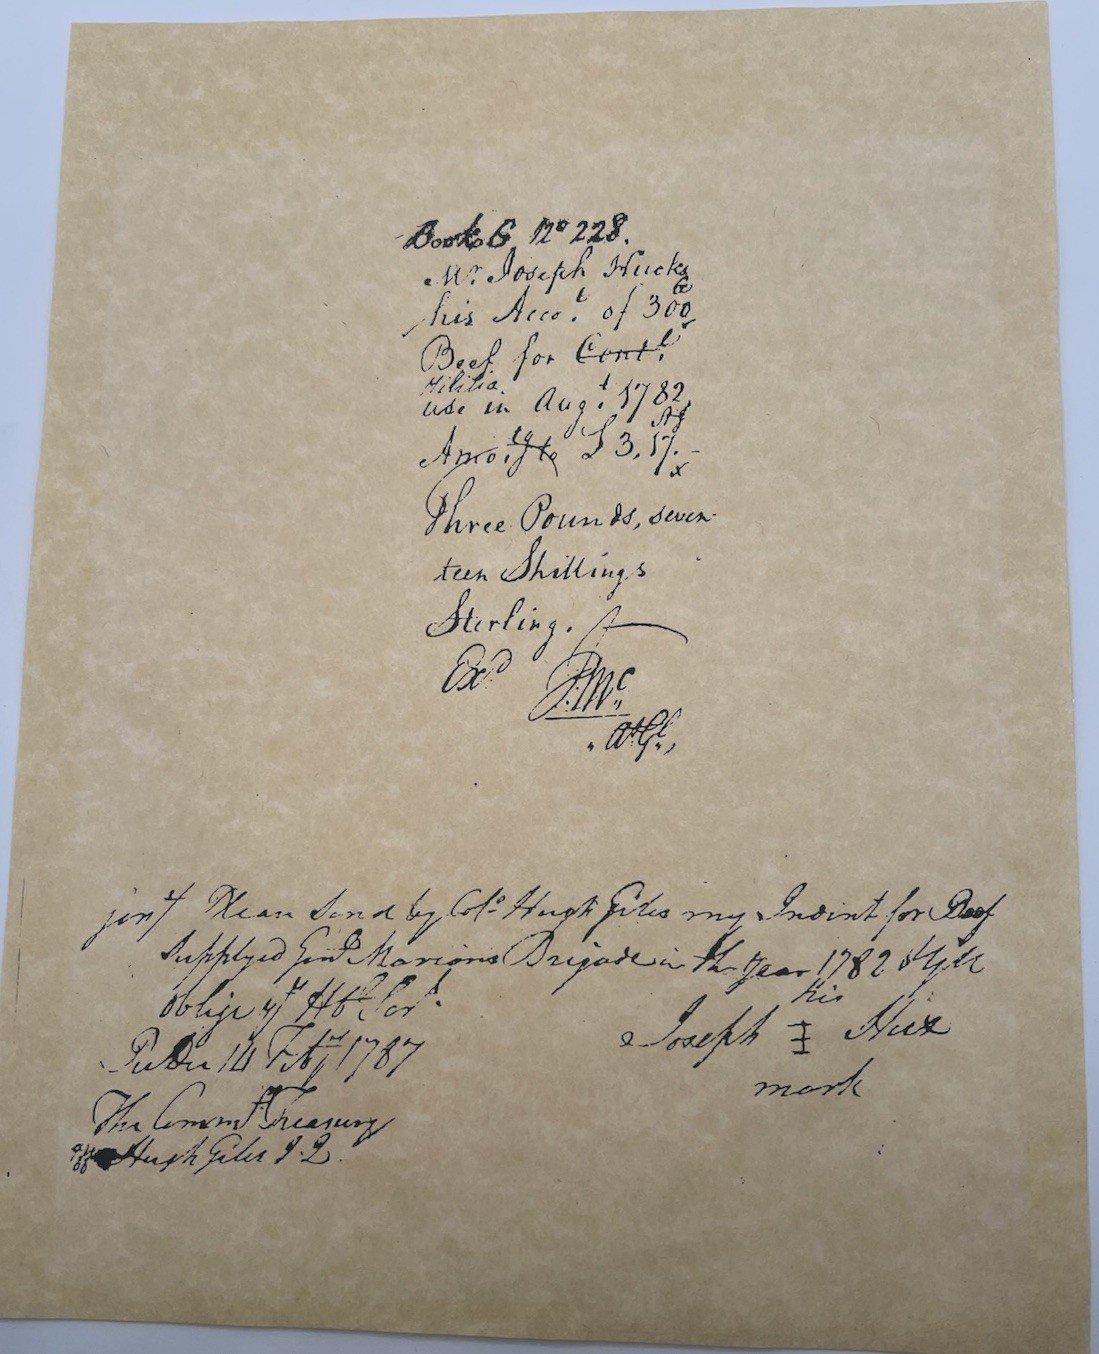 Book G No 228.
Mr. Joseph Hucks
his Acco.t of 300 lb
Beef for Cont.l
Militia
use in Aug.t 1782,
Amo.tg to £ 3,17.-
Three Pounds, seven-
teen Shillings
Sterling.
Exd. J. Mc.
A. Gl.,
Please Send by Colo Hugh Giles my Indint for Beef
Supplyed Genl Marions Brigade in the Year 1782
oblige yr Hble Sert
his
Joseph Hux
mark
PeeDee 14 Feby 1787
The Commrs Treasury
Hugh Giles J.Q.